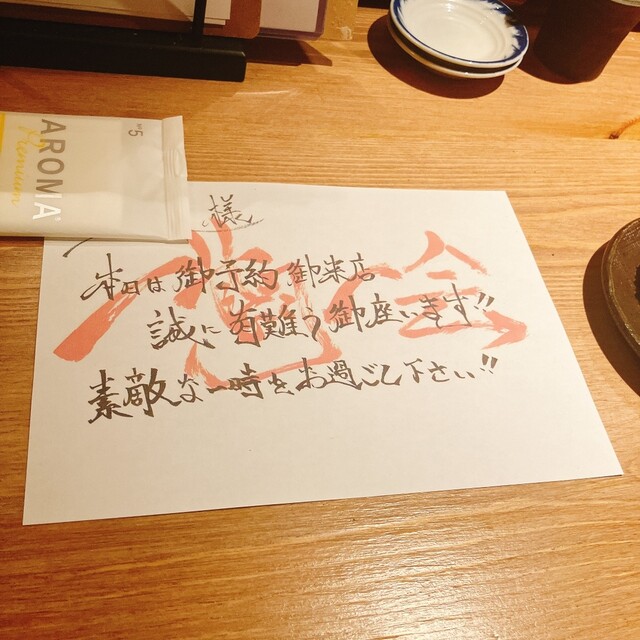 No5
AROMA
Premium
様
本日は御予約 御来店
誠に有難う御座います!!
素敵な一時をお過ごし下さい!!